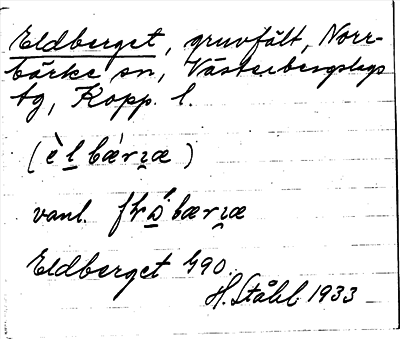 Eldberget, gruvfält, Norr-
bärke sn, Västerbergslags
tg, Kopp. l.
(èl bærɪ̯æ)
vanl. bærɪ̯æ
Eldberget 490.
H. Ståhl 1933